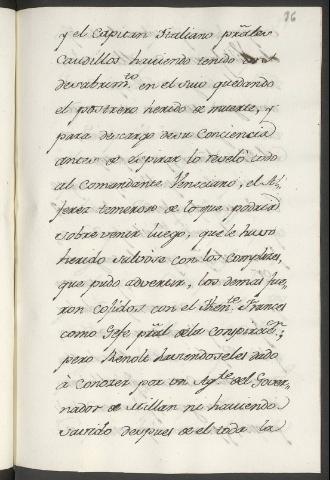 96
y el Capitan Italiano prãles
Caudillos haviendo tenido
desabrim.to en el suio quedando
el postrero herido de muerte, y
para descargo de su Conciencia
antes de espirar lo reveló todo
al Comandante Veneciano, el Al-
ferez temeroso de lo que podria
sobrevenir luego, que le huvo
herido salvose con los Complices,
que pudo advertir, los demas fue-
ron cojidos con el Then.te Frances
como Gefe prãl de la conspirac.on;
pero Renolt haviendoseles dado
à conozer por un Ag.te del Gover-
nador de Millan ni haviendo
savido despues de el toda la